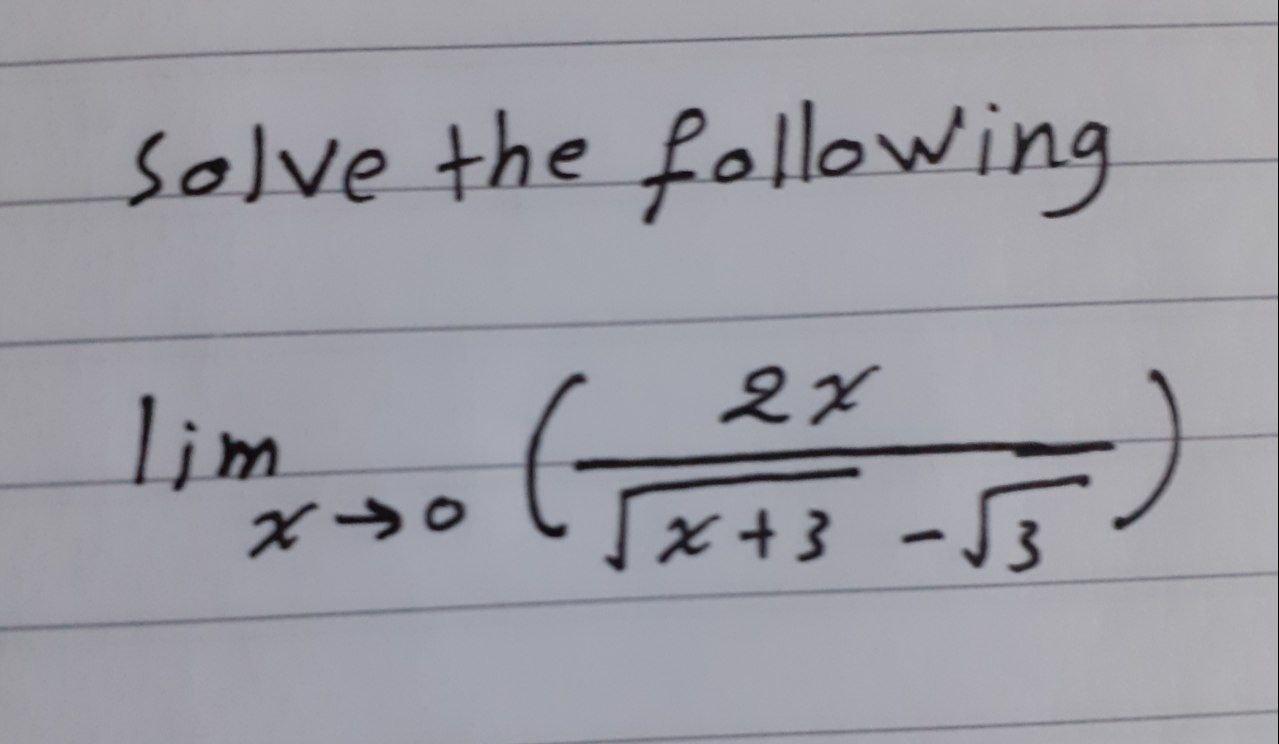 Solve the following
lim x→0 (2x / √x+3 - √3)